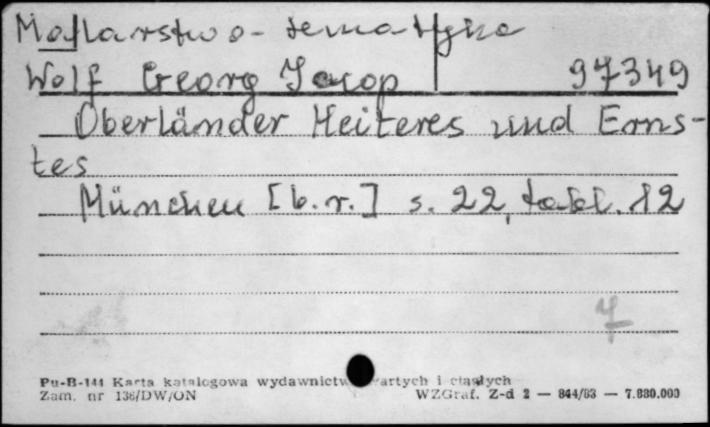 Malarstwo - tematyka
Wolf Georg Jacop 97349
Oberländer Heiteres und Erns-
tes
München [b.r.] s. 22, tabl. 12
7
Pu-B-144 Karta katalogowa wydawnictw zwartych i ciągłych
Zam. nr 136/DW/ON WZGraf. Z-d 2 — 844/63 — 7.880.000